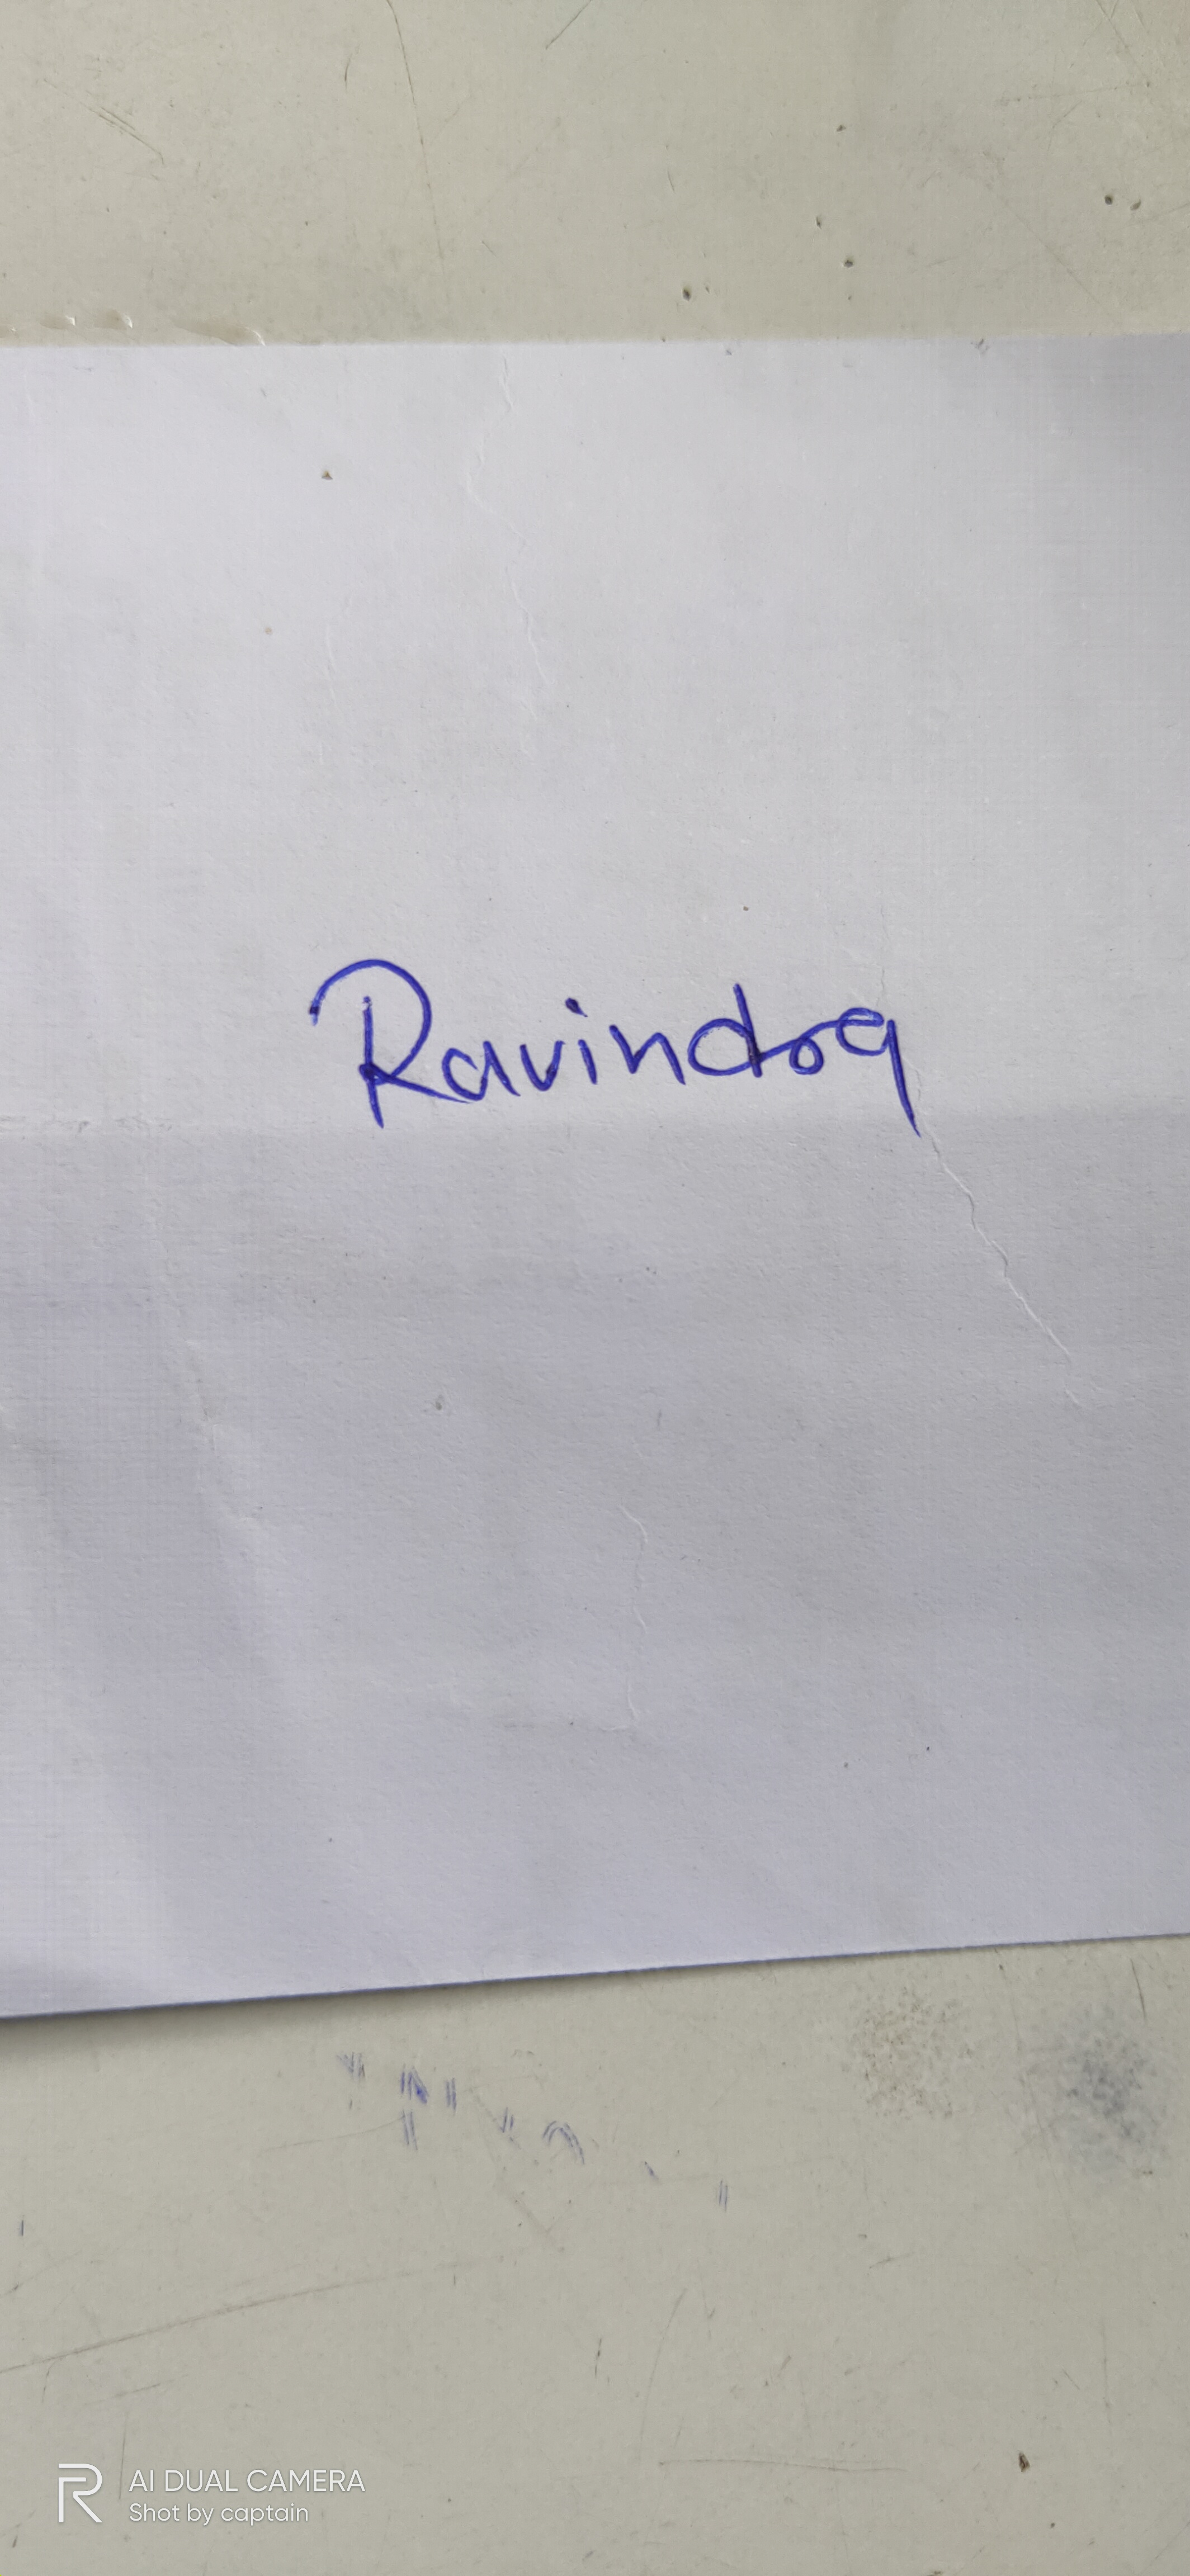 Ravindra
AI DUAL CAMERA
Shot by captain